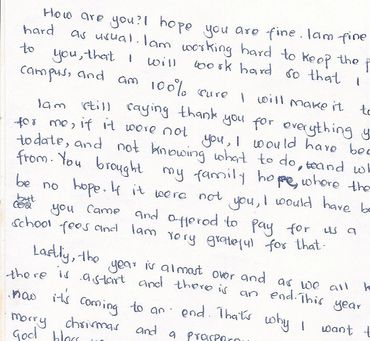 How are you? I hope you are fine. Iam fine
hard as usual. Iam working hard to keep the p
to you, that I will work hard so that I
campus, and am 100% sure I will make it to
Iam still saying thank you for everything y
for me, if it were not you, I would have bee
todate, and not knowing what to do, and wh
from. You brought my family hope, where the
be no hope. If it were not you, I would have b
you came and offered to pay for us a
school fees and Iam very grateful for that.
Lastly, the year is almost over and as we all k
there is a start and there is an end. This year
now it's coming to an end. That's why I want t
merry chrismas and a prosperou
God bless yo